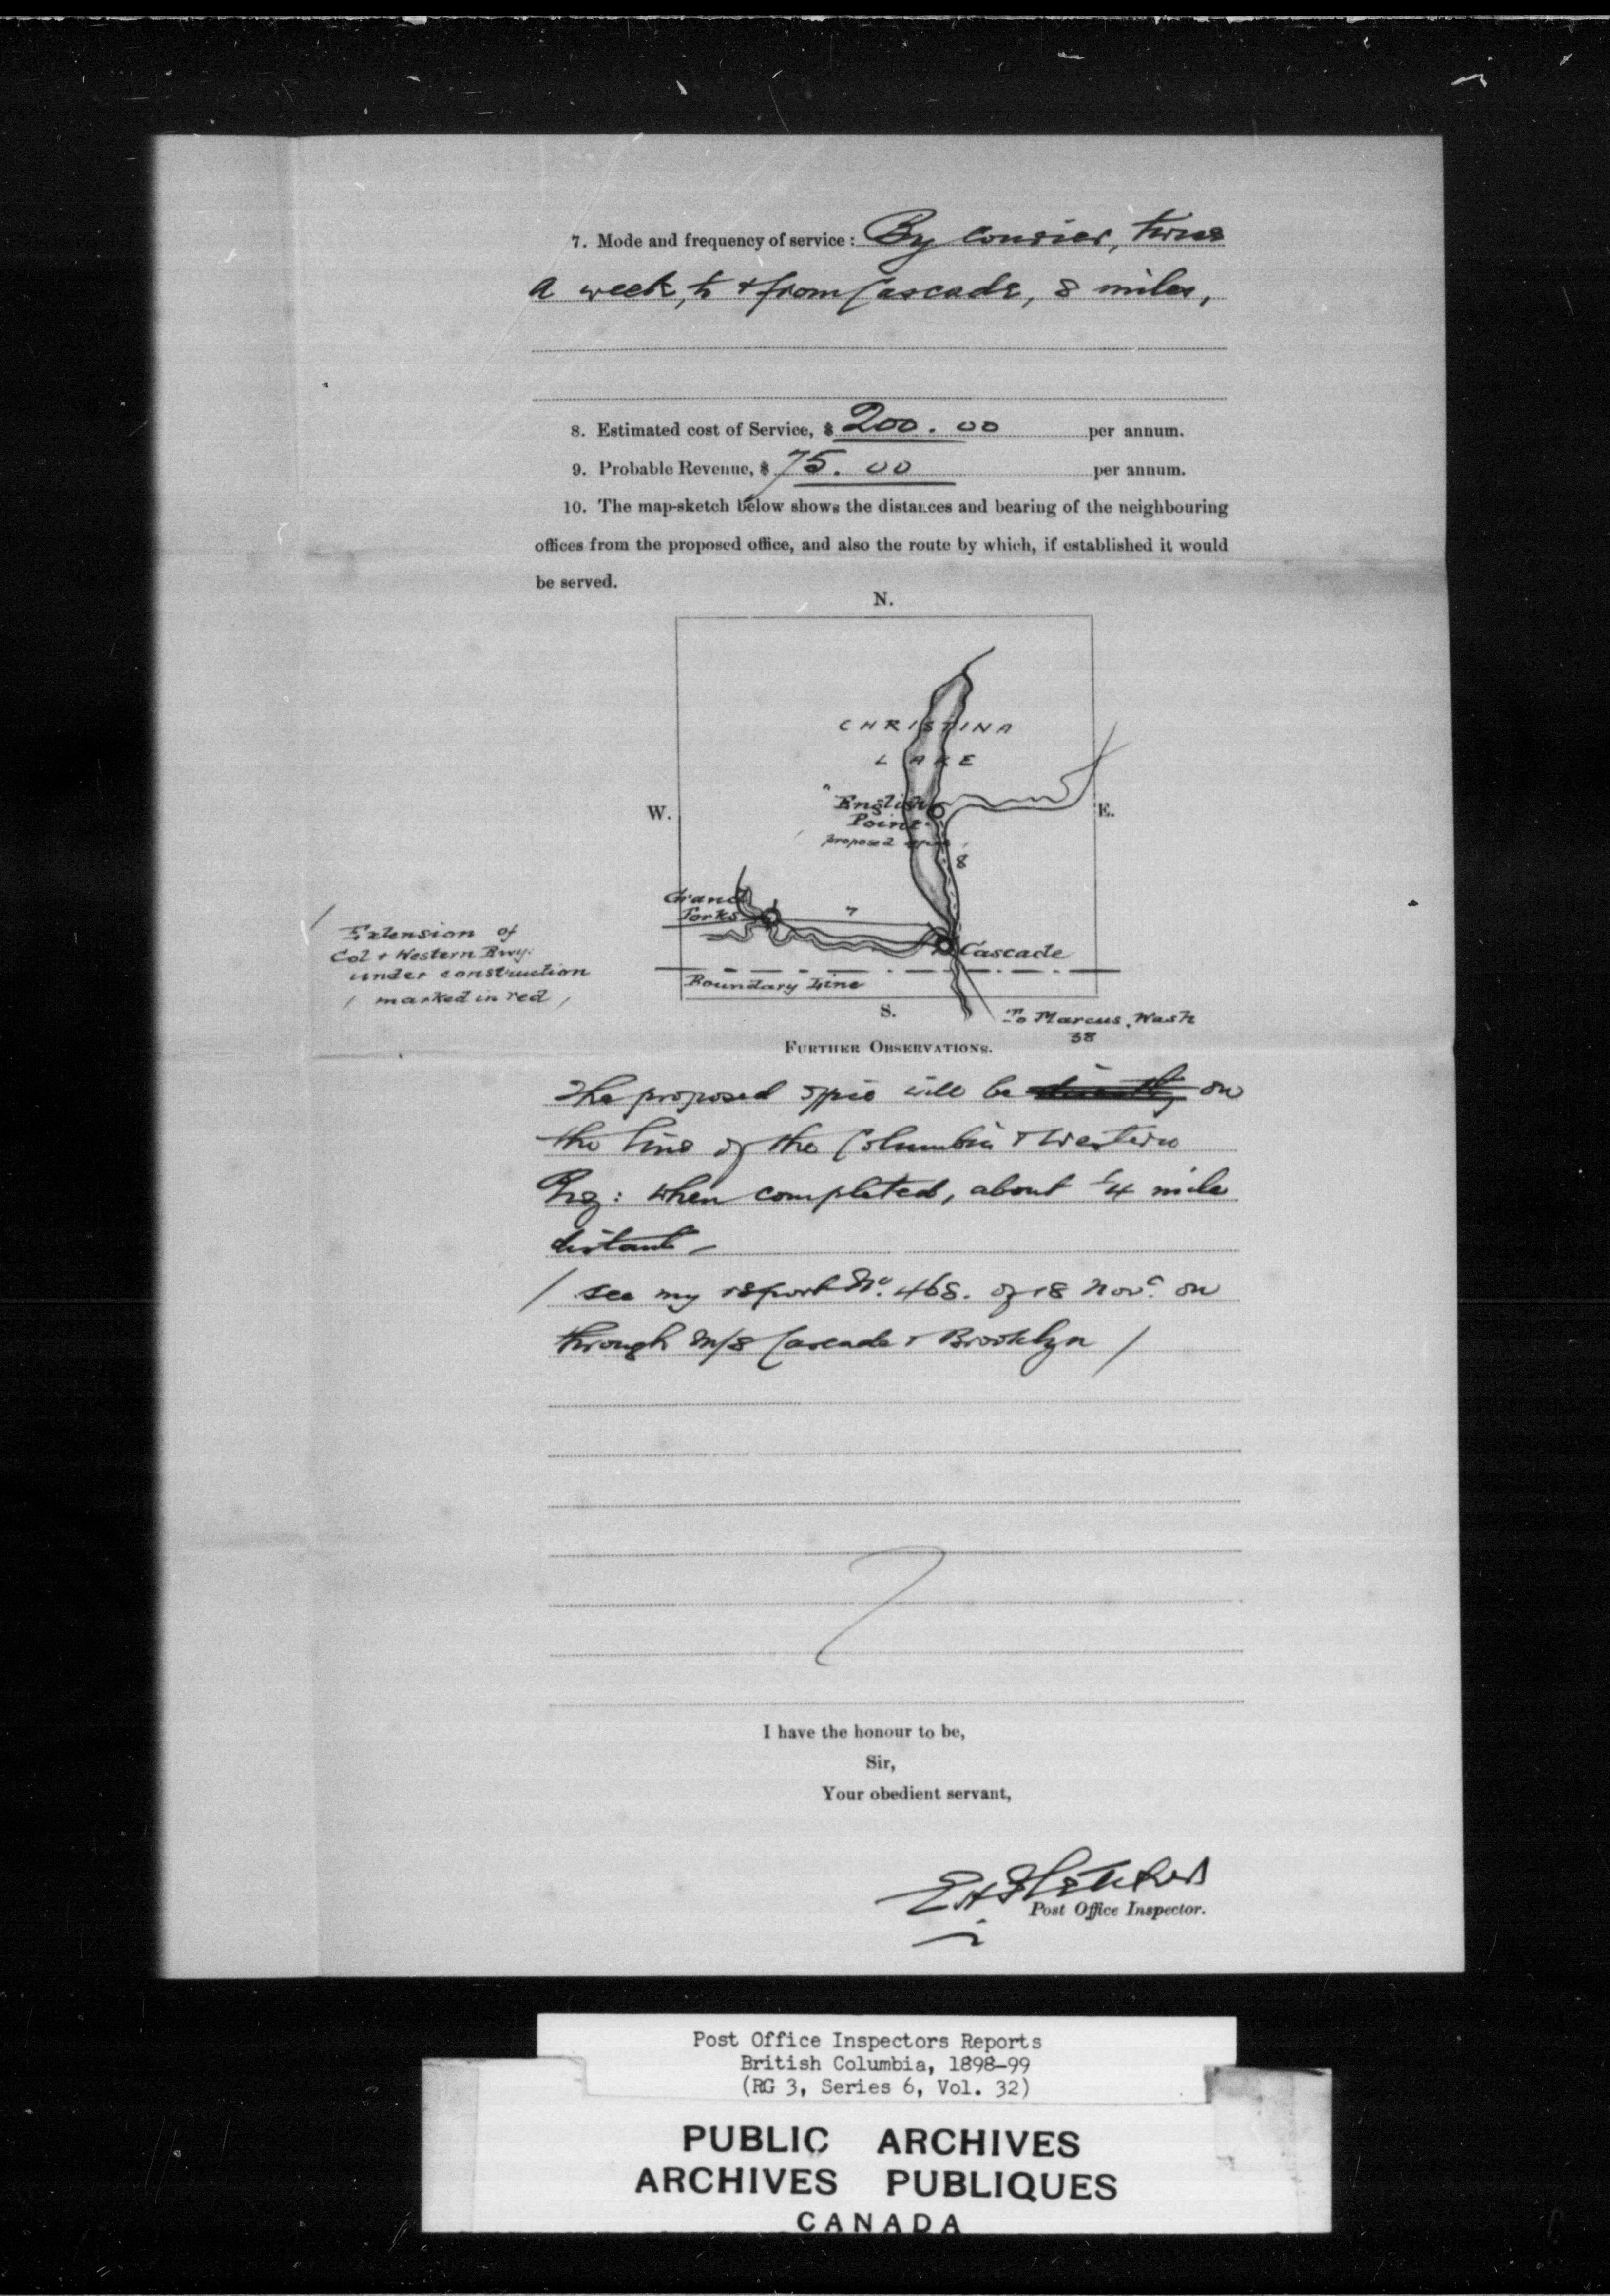 7. Mode and frequency of service: By Courier, twice
a week, to + from Cascade, 8 miles,
8. Estimated cost of Service, $ 200.00 per annum.
9. Probable Revenue, $ 75.00 per annum.
10. The map-sketch below shows the distances and bearing of the neighbouring
offices from the proposed office, and also the route by which, if established it would
be served.
N.
CHRISTINA
LAKE
W.
"English
Point"
proposed office
E.
8
Grand
Forks
7
Cascade
Boundary Line
S.
To Marcus, Wash
38
/ Extension of
Col + Western Rwy.
under construction
/ marked in red /
FURTHER OBSERVATIONS.
The proposed office will be on
the line of the Columbia + Western
Ry: when completed, about ¼ mile
distant –
/ see my report No. 468. of 18 Nov. on
through m/s Cascade + Brooklyn /
I have the honour to be,
Sir,
Your obedient servant,
Post Office Inspector.
Post Office Inspectors Reports
British Columbia, 1898-99
(RG 3, Series 6, Vol. 32)
PUBLIC ARCHIVES
ARCHIVES PUBLIQUES
CANADA